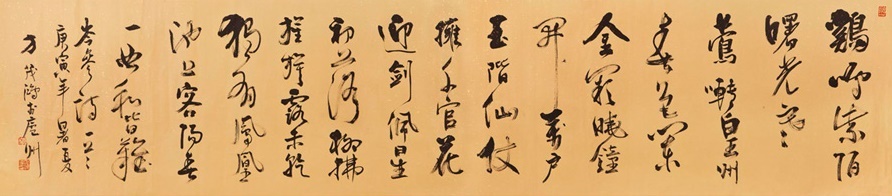 鷄鳴紫陌
曙光寒
鶯囀皇州
春色闌
金闕曉鐘
開萬户
玉階仙仗
擁千官花
迎劍佩星
初落柳拂
旌旗露未乾
獨有鳳凰
池上客陽春
一曲和皆難
岑參詩一首
庚寅年暑夏
方茂鴻書虔州